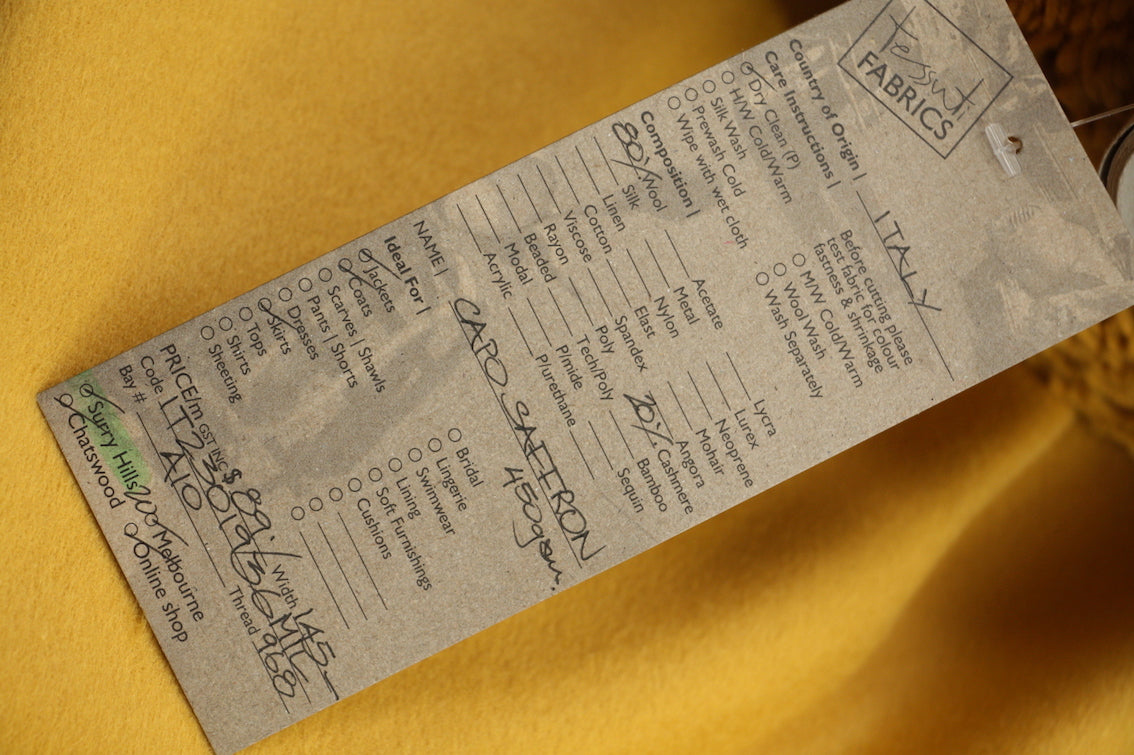 tessuti
FABRICS
Country of Origin | ITALY
Care Instructions |
Dry Clean (P)
H/W Cold/Warm
Silk Wash
Prewash Cold
Wipe with wet cloth
Before cutting please
test fabric for colour
fastness & shrinkage
M/W Cold/Warm
Wool Wash
Wash Separately
Composition |
80% Wool
Silk
Linen
Cotton
Viscose
Rayon
Beaded
Modal
Acrylic
Acetate
Metal
Nylon
Elast
Spandex
Poly
Tech/Poly
P/mide
P/urethane
Lycra
Lurex
Neoprene
Mohair
Angora
20% Cashmere
Bamboo
Sequin
NAME | CAPO SAFFRON
450gsm.
Ideal For |
Jackets
Coats
Scarves | Shawls
Pants | Shorts
Dresses
Skirts
Tops
Shirts
Sheeting
Bridal
Lingerie
Swimwear
Lining
Soft Furnishings
Cushions
PRICE/m GST INC $89./ Width 145
Code Thread 968
Bay # A10
Surry Hills Melbourne
Chatswood Online shop